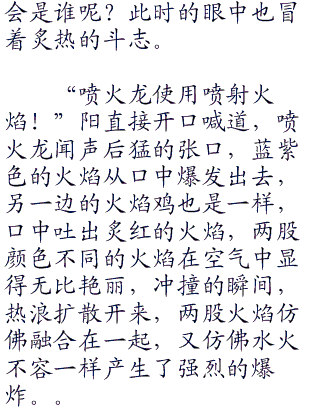 会是谁呢？此时的眼中也冒
着炙热的斗志。
“喷火龙使用喷射火
焰！”阳直接开口喊道，喷
火龙闻声后猛的张口，蓝紫
色的火焰从口中爆发出去，
另一边的火焰鸡也是一样，
口中吐出炙红的火焰，两股
颜色不同的火焰在空气中显
得无比艳丽，冲撞的瞬间，
热浪扩散开来，两股火焰仿
佛融合在一起，又仿佛水火
不容一样产生了强烈的爆
炸。。